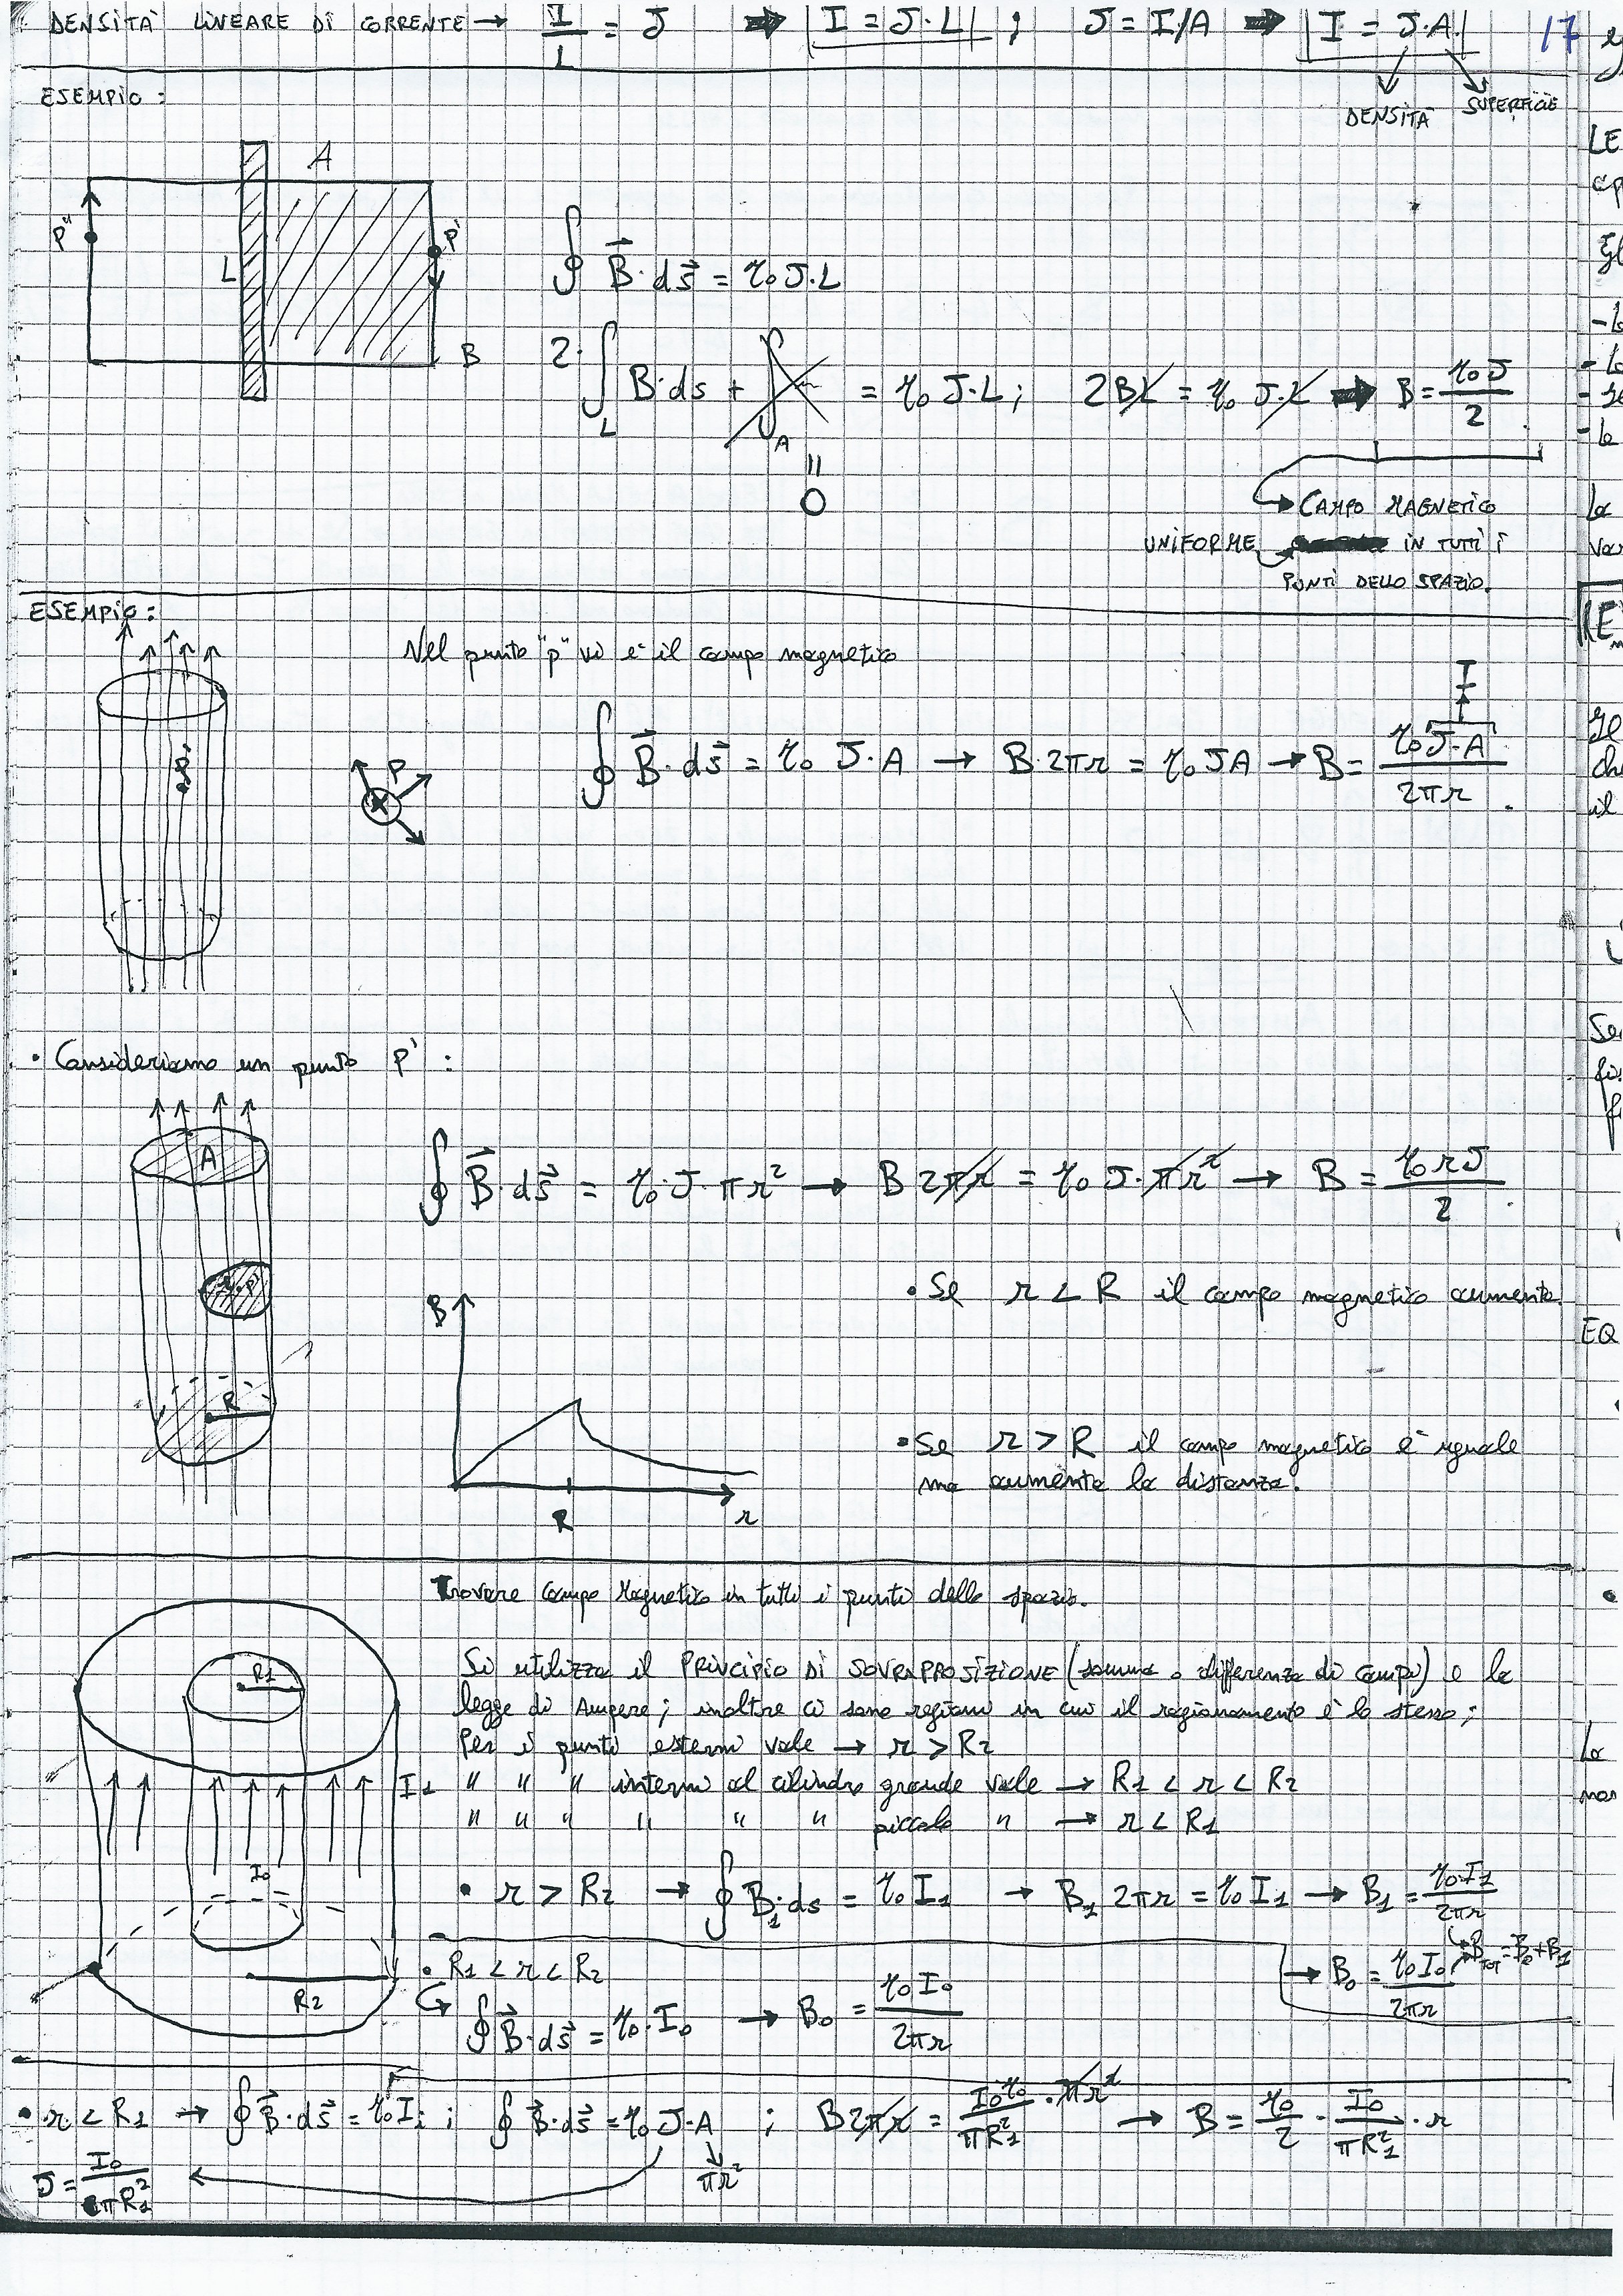 DENSITÀ LINEARE DI CORRENTE → I/L = J ⇒ I = J·L ; J = I/A ⇒ I = J·A 17
DENSITÀ SUPERFICIE
ESEMPIO:
A
P" L P'
B
∮ B⃗·ds⃗ = μ₀ J·L
2·∫_L B·ds + ∫_A = μ₀ J·L ; 2BL = μ₀ J·L ⇒ B = μ₀J/2
= 0
CAMPO MAGNETICO
UNIFORME IN TUTTI I
PUNTI DELLO SPAZIO.
ESEMPIO:
Nel punto "p" vi è il campo magnetico
P
I
∮ B⃗·ds⃗ = μ₀ J·A → B·2πr = μ₀ JA → B = μ₀J·A/2πr.
• Consideriamo un punto P' :
A
∮ B⃗·ds⃗ = μ₀·J·πr² → B 2πr = μ₀ J·πr² → B = μ₀rJ/2.
• Se r < R il campo magnetico aumenta.
R
B
R r
• Se r > R il campo magnetico è uguale
ma aumenta la distanza.
Trovare campo Magnetico in tutti i punti dello spazio.
R1
Si utilizza il PRINCIPIO DI SOVRAPPOSIZIONE (somma o differenza di campi) e la
legge di Ampere; inoltre ci sono regioni in cui il ragionamento è lo stesso;
Per i punti esterni vale → r > R2
I1
" " " interni al cilindro grande vale → R1 < r < R2
" " " " " " piccolo " → r < R1
I₀
• r > R2 → ∮ B₁·ds = μ₀I₁ → B₁ 2πr = μ₀I₁ → B₁ = μ₀I₁/2πr
→ B₀ = μ₀I₀/2πr B_TOT = B₀+B₁
R2
• R1 < r < R2
∮ B⃗·ds⃗ = μ₀·I₀ → B₀ = μ₀I₀/2πr
• r < R1 → ∮ B⃗·ds⃗ = μ₀Iᵢ ; ∮ B⃗·ds⃗ = μ₀ J·A ; B2πr = I₀μ₀/πR₁² · πr² → B = μ₀/2 · I₀/πR₁² · r
J = I₀/πR₁² πr²